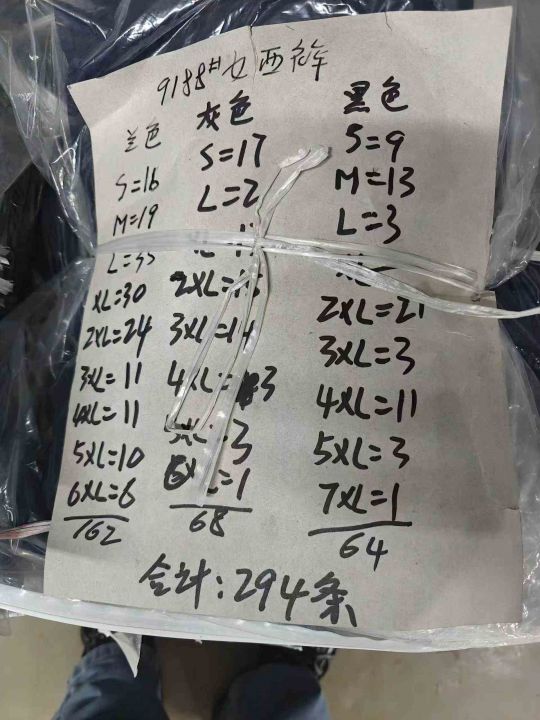 9188#女西裤
兰色
S=16
M=19
L=35
XL=30
2XL=24
3XL=11
4XL=11
5XL=10
6XL=6
162
灰色
S=17
L=2
2XL=
3XL=14
4XL=3
5XL=3
6XL=1
68
黑色
S=9
M=13
L=3
XL
2XL=21
3XL=3
4XL=11
5XL=3
7XL=1
64
合计:294条